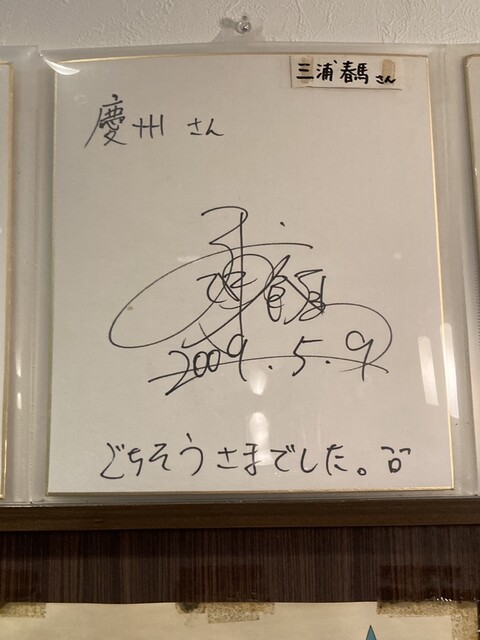 三浦春馬さん
慶州 さん
2009.5.9
ごちそうさまでした。